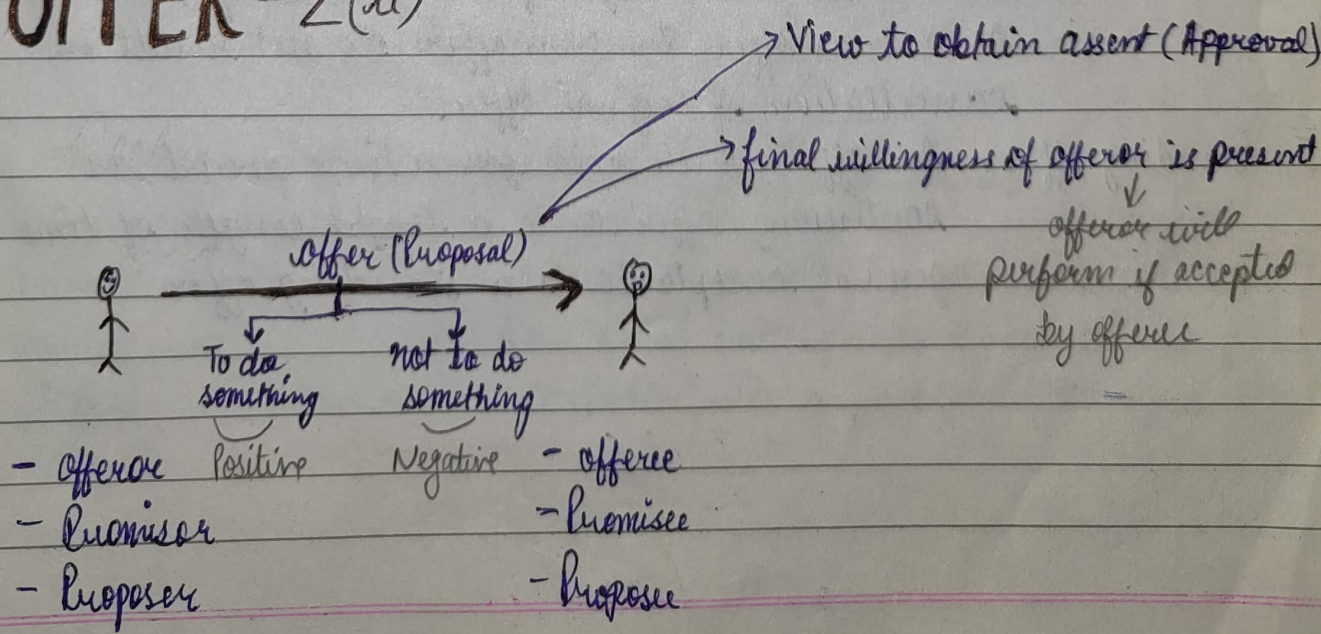 OFFER - 2(a)
→ View to obtain assent (Approval)
→ final willingness of offeror is present
offeror will
perform if accepted
by offeree
offer (Proposal)
To do
something
Positive
not to do
something
Negative
- offeror
- Promisor
- Proposer
- offeree
- Promisee
- Proposee